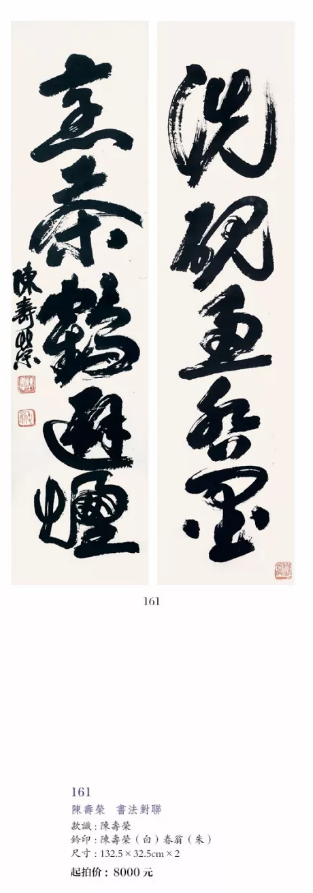 洗硯魚吞墨
烹茶鶴避煙
陳壽榮
161
161
陳壽榮 書法對聯
款識：陳壽榮
鈐印：陳壽榮（白）春翁（朱）
尺寸：132.5×32.5cm×2
起拍价：8000 元